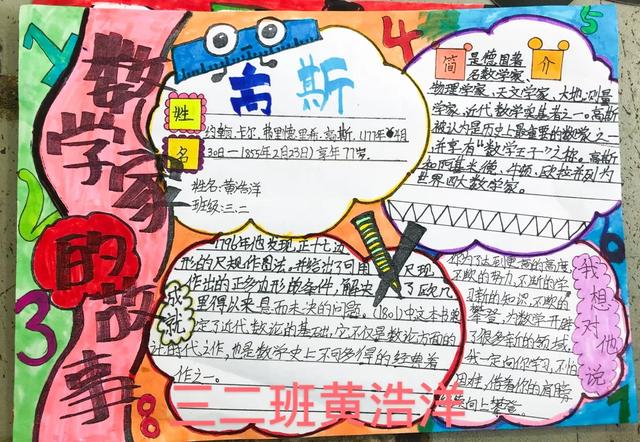 数学家的故事
高斯
姓名
约翰·卡尔·弗里德里希·高斯
30日—1855年2月23日)享年77岁。
姓名:黄浩洋
班级:三、二
简介
是德国著
名数学家、
物理学家、天文学家、大地测量
学家,近代数学奠基者之一。高斯
被认为是历史上最重要的数学家之一
并享有"数学王子"之称。高斯
和阿基米德、牛顿、欧拉并列为
世界四大数学家。
成就
1796年他发现,正十七边
形的尺规作图法。并给出了可用尺规
作出的正多边形的条件,解决了欧几
里得以来悬而未决的问题。(1801)
定了近代数论的基础,它不仅是数论方面的
代之作,也是数学史上不可多得的经典着
作之一。
我想对他说
你为了达到更高的高度,
不断的努力,不断的学
习新的知识,不断的
攀登,为数学开辟
了很多新的领域,
我一定向你学习,不怕
困难,
向上攀登。
1
2
3
4
5
6
7
8
三二班黄浩洋